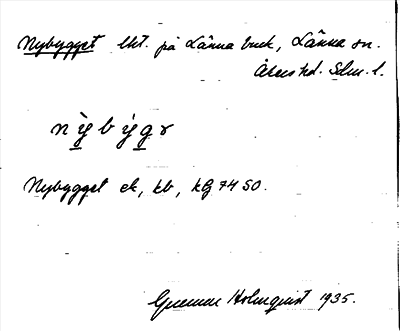 Nybygget lht. på Länna bruk, Länna sn.
Åkers hd. Sdm. l.
nỳbýgg
Nybygget ek, kb, kG 74 SO.
Gunnar Holmquist 1935.